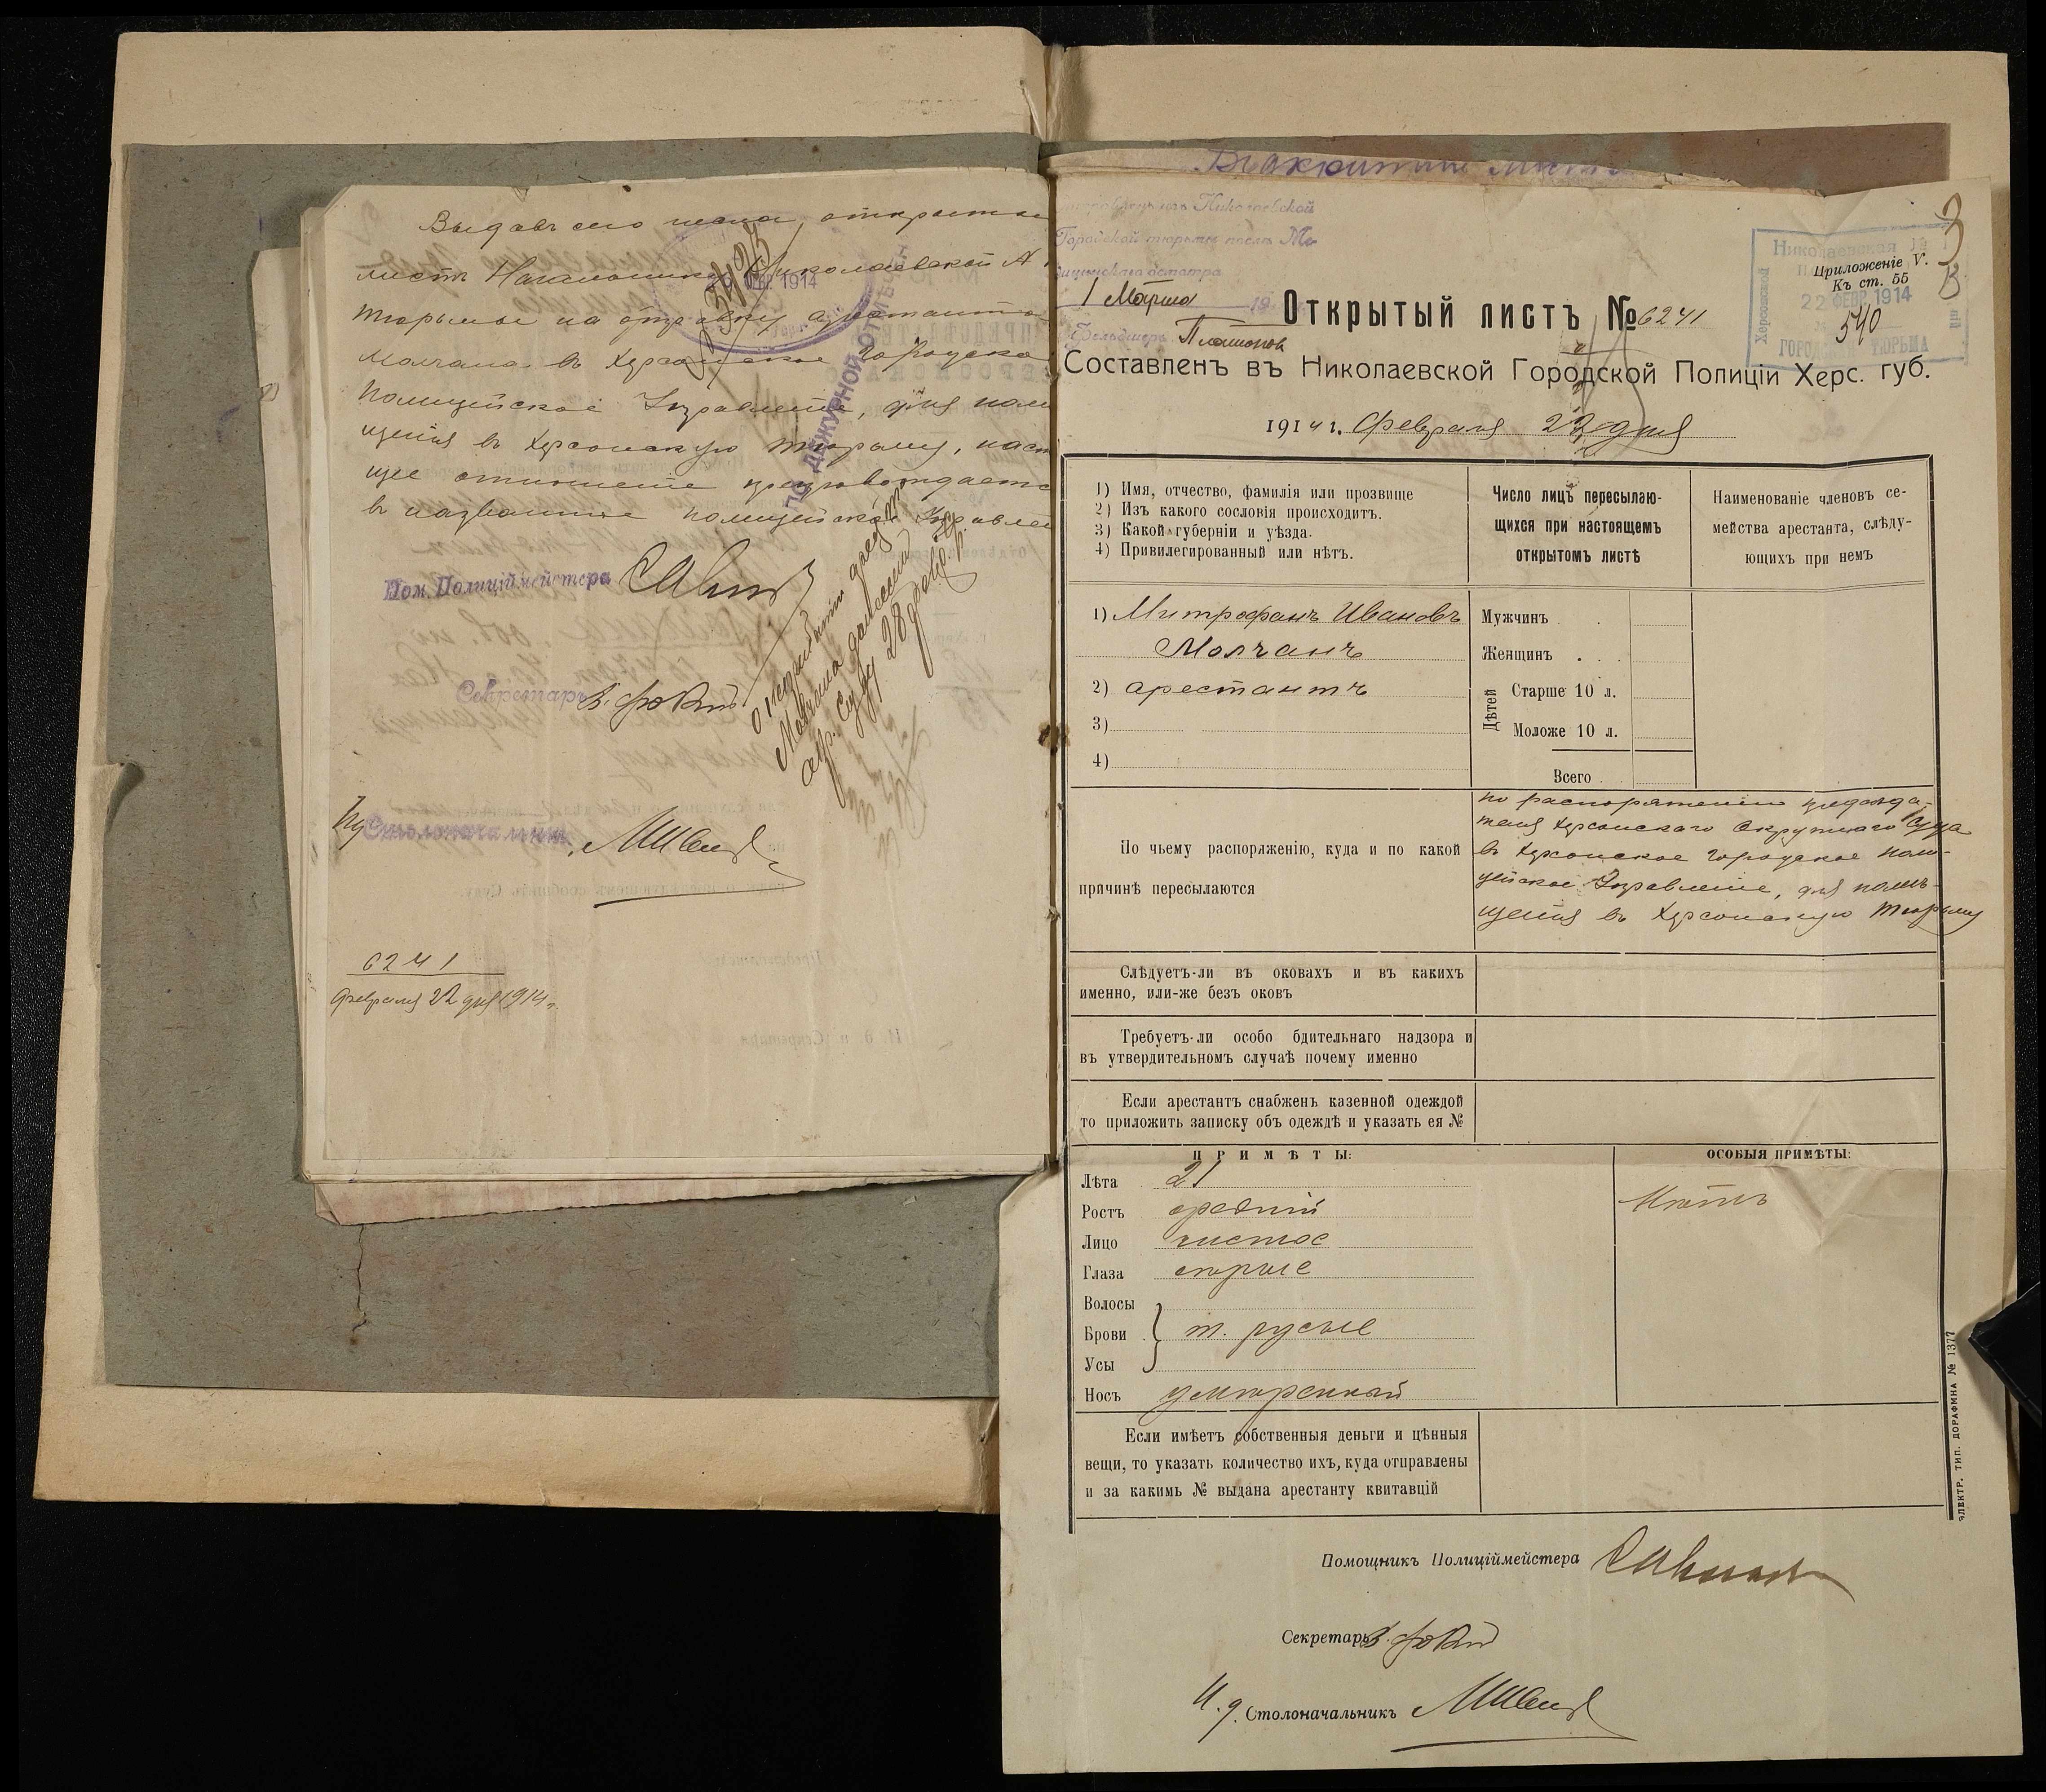 Выдавъ сего числа, открытый
листъ Начальнику Николаевской
тюрьмы на отправку арестанта
Молчана въ Херсонское Городское
Полицейское Управленіе, для
щенія въ Херсонскую тюрьму,
щее отношеніе препровождается
въ названное полицейское
1914
ПО ДЕЖУРНОЙ
Пом. Полиціймейстера
Секретарь
О неприбытіи
Молчана
28
Столоначальникъ
6241
Февраля 22 дня 1914 г.
Николаевской
Городской тюрьмы
1 Марта 19
Фельдшеръ
Николаевская
Приложеніе V.
Къ ст. 55
22 ФЕВР 1914
540
ГОРОДСКАЯ ТЮРЬМА
Херсонской
Открытый листъ № 6241
Составленъ въ Николаевской Городской Полиціи Херс. губ.
1914 г. Февраля 22 дня
1) Имя, отчество, фамилія или прозвище
2) Изъ какого сословія происходитъ.
3) Какой губерніи и уѣзда.
4) Привилегированный или нѣтъ.
Число лицъ пересылаю-
щихся при настоящемъ
открытомъ листѣ
Наименованіе членовъ се-
мейства арестанта, слѣду-
ющихъ при немъ
1) Митрофанъ Ивановъ
Молчанъ
2) арестантъ
3)
4)
Мужчинъ
Женщинъ
Дѣтей
Старше 10 л.
Моложе 10 л.
Всего
По чьему распоряженію, куда и по какой
причинѣ пересылаются
по распоряженію председа-
теля Херсонскаго Окружнаго Суда
въ Херсонское Городское Поли-
цейское Управленіе, для помѣ-
щенія въ Херсонскую тюрьму
Слѣдуетъ-ли въ оковахъ и въ какихъ
именно, или-же безъ оковъ
Требуетъ-ли особо бдительнаго надзора и
въ утвердительномъ случаѣ почему именно
Если арестантъ снабженъ казенной одеждой
то приложить записку объ одеждѣ и указать ея №
ПРИМѢТЫ:
ОСОБЫЯ ПРИМѢТЫ:
Лѣта 21
Ростъ средній
Лицо чистое
Глаза сѣрые
Волосы
Брови т. русые
Усы
Носъ умѣренный
Нѣтъ
Если имѣетъ собственныя деньги и цѣнныя
вещи, то указать количество ихъ, куда отправлены
и за какимъ № выдана арестанту квитавцій
ЭЛЕКТР. ТИП. ДОРАФМНА № 1377
Помощникъ Полиціймейстера
Секретарь
И. д. Столоначальникъ